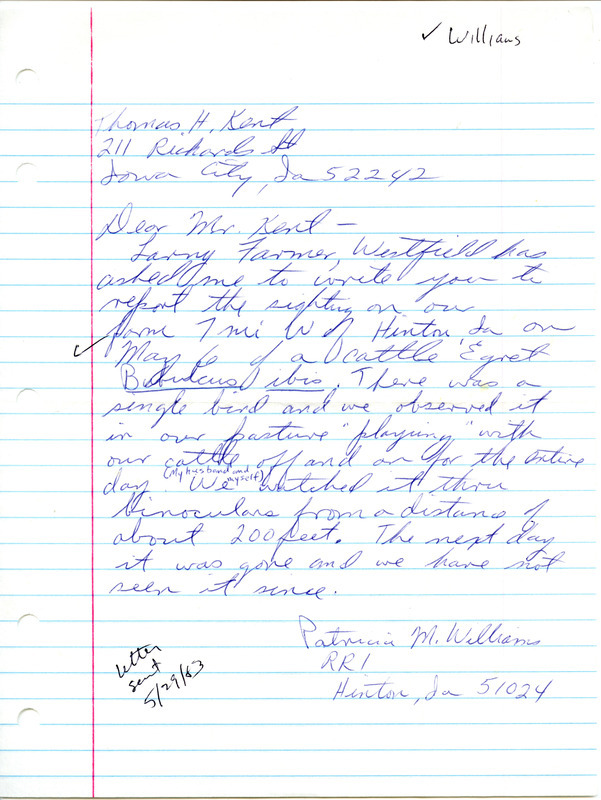 ✓ Williams
Thomas H. Kent
211 Richards St
Iowa City, Ia 52242
Dear Mr. Kent –
Larry Farmer, Westfield has
asked me to write you to
report the sighting on our
farm 7 mi W of Hinton, Ia on
✓ May 6 of a cattle Egret
Bubulcus ibis. There was a
single bird and we observed it
in our pasture "playing" with
our cattle off and on for the entire
(My husband and myself)
day. We watched it thru
binoculars from a distance of
about 200 feet. The next day
it was gone and we have not
seen it since.
Patricia M. Williams
RR1
Hinton, Ia 51024
letter
sent
5/29/83